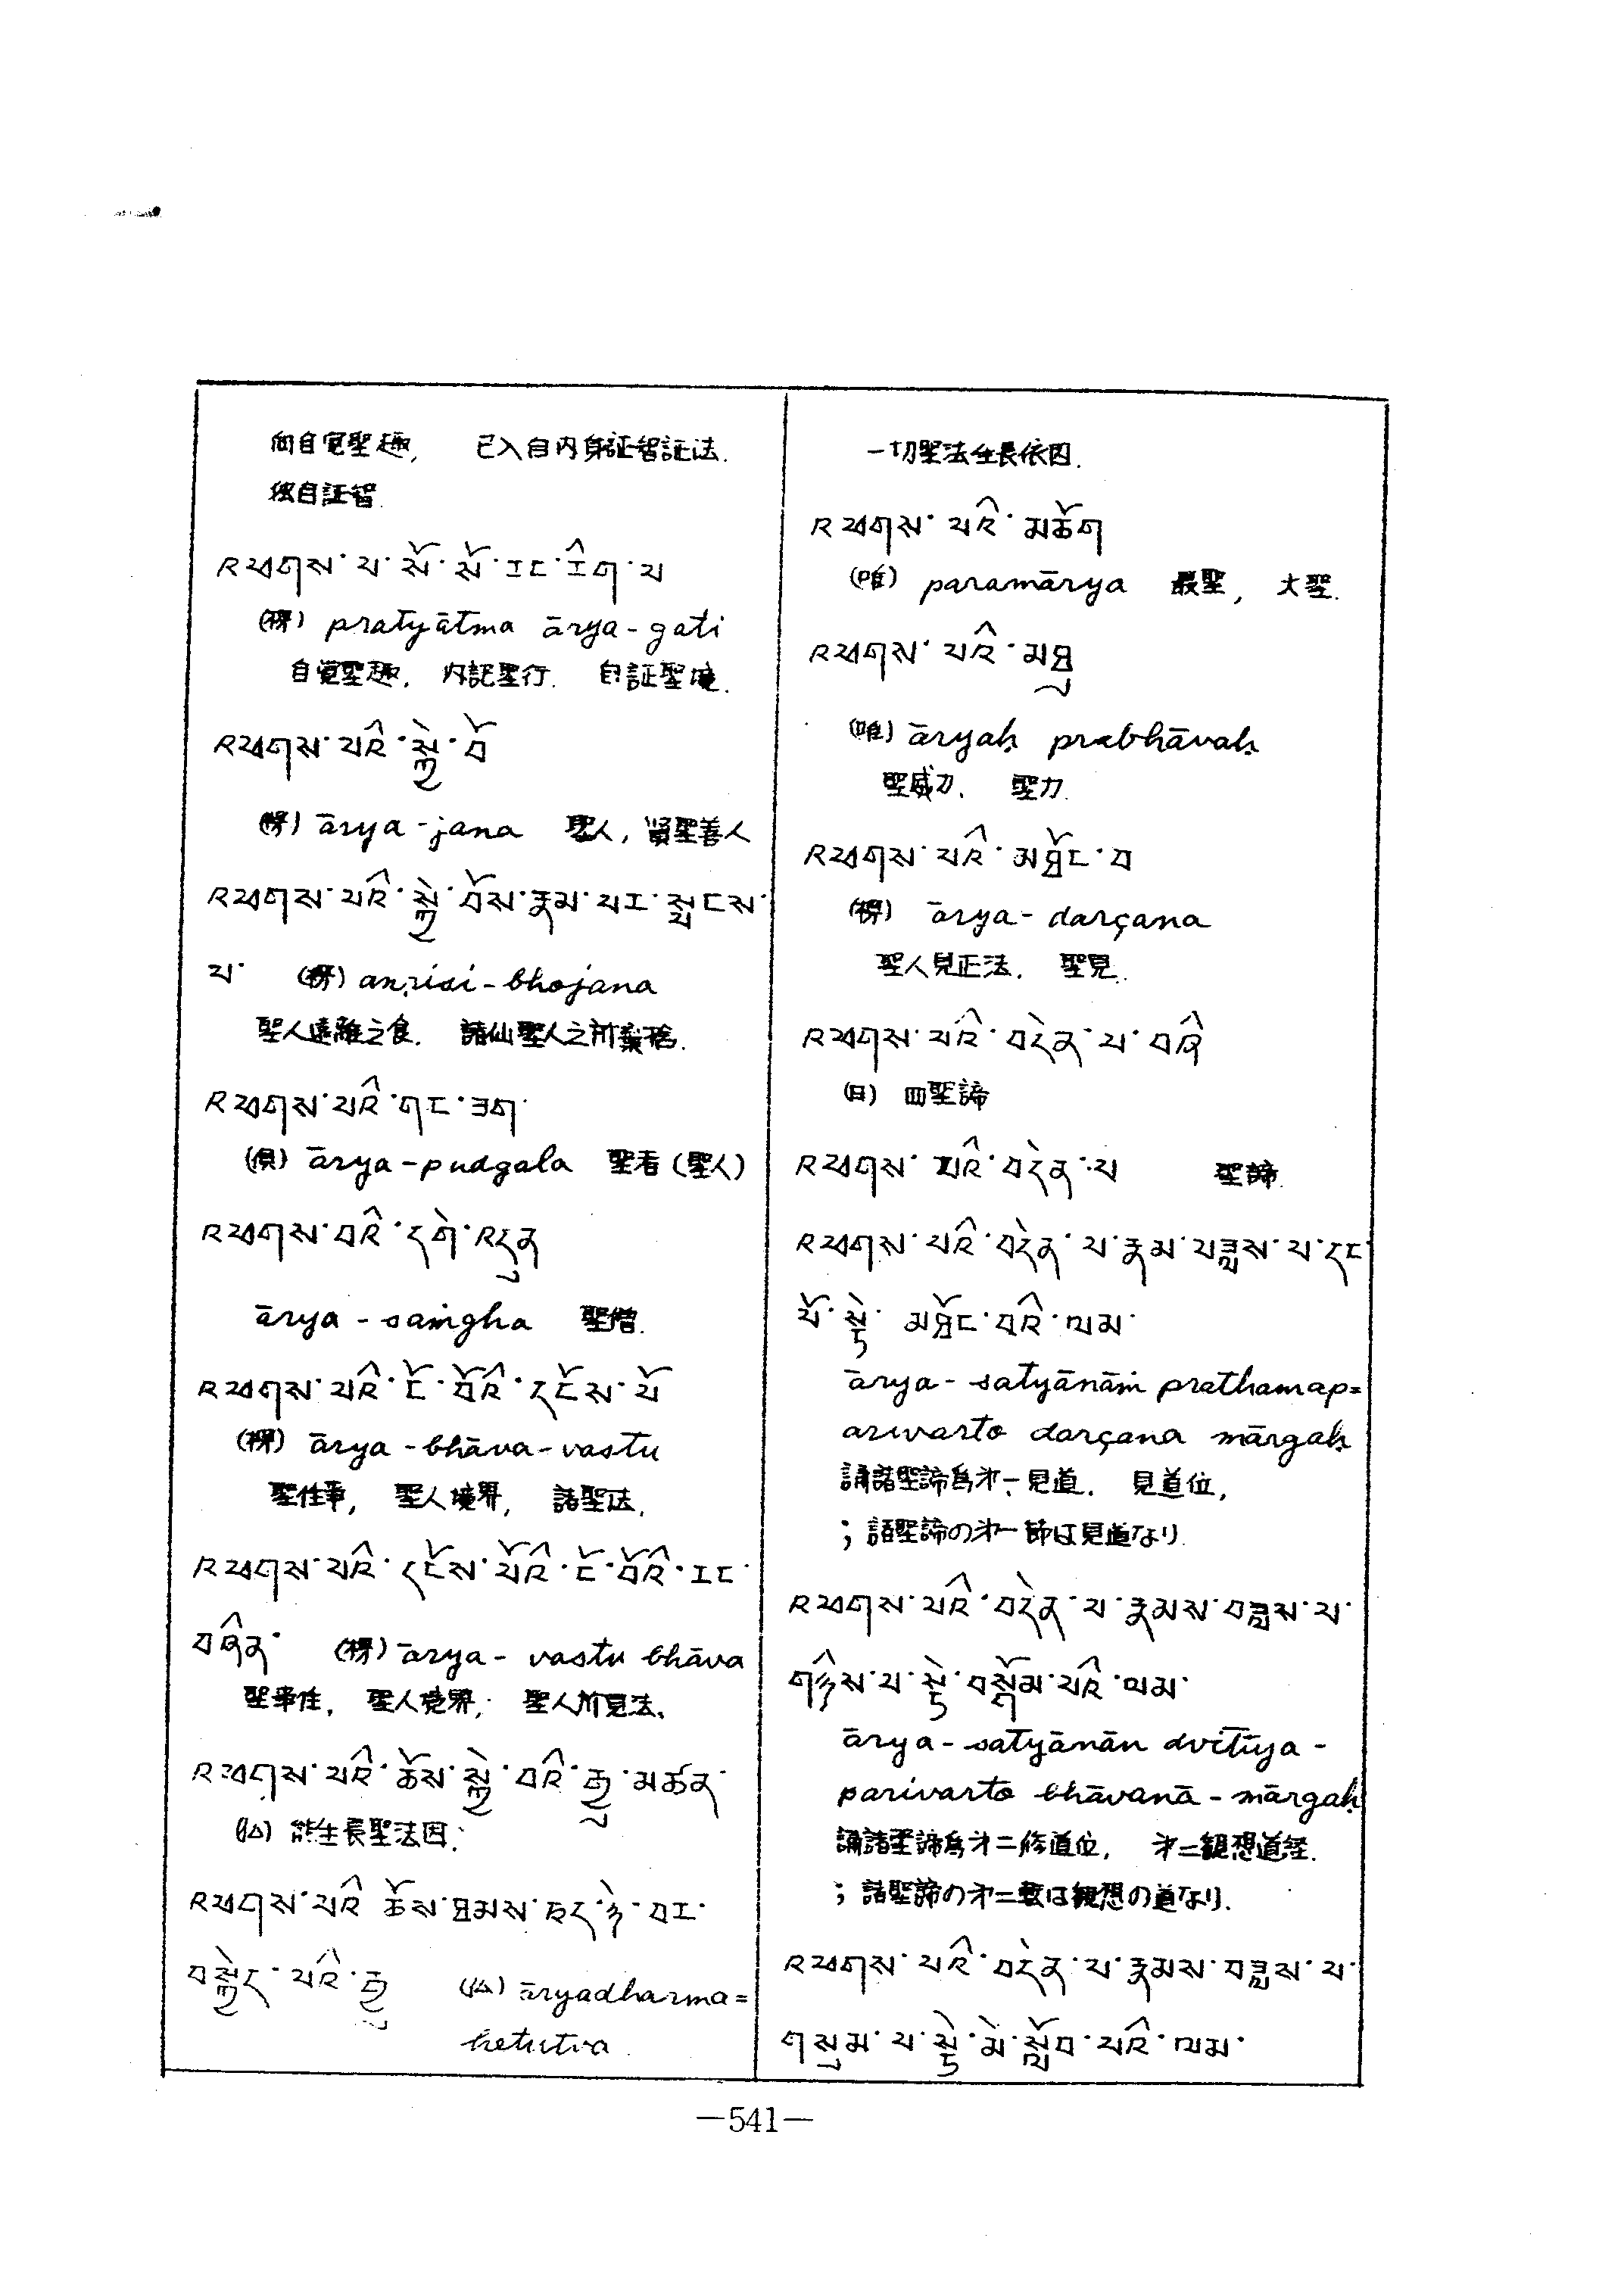 向自覚聖趣, 已入自内身証智証法.
彼自証智.
འཕགས་པ་སོ་སོ་རང་རིག་པ
(楞) pratyātma ārya-gati
自覚聖趣, 内証聖行. 自証聖境.
འཕགས་པའི་སྐྱེ་བོ
(楞) ārya-jana 聖人, 賢聖善人
འཕགས་པའི་སྐྱེ་བོས་རྣམ་པར་སྤངས་
པ་ (楞) anṛisi-bhojana
聖人遠離之食. 諸仙聖人之所棄捨.
འཕགས་པའི་གང་ཟག་
(倶) ārya-pudgala 聖者 (聖人)
འཕགས་པའི་དགེ་འདུན
ārya-saṁgha 聖僧.
འཕགས་པའི་ངོ་བོའི་དངོས་པོ
(楞) ārya-bhāva-vastu
聖性事, 聖人境界, 諸聖法.
འཕགས་པའི་དངོས་པོའི་ངོ་བོའི་རང་
བཞིན་ (楞) ārya-vastu bhāva
聖事性, 聖人境界, 聖人所見法.
འཕགས་པའི་ཆོས་སྐྱེ་བའི་རྒྱུ་མཚན་
(仏) 能生長聖法因.
འཕགས་པའི ཆོས་ཐམས་ཅད་ཉེ་བར་
བསྐྱེད་པའི་རྒྱུ (仏) āryadharma=
hetutva.
一切聖法生長依因.
འཕགས་པའི་མཆོག
(唯) paramārya 最聖, 大聖.
འཕགས་པའི་མཐུ
(唯) āryaḥ prabhāvaḥ
聖威力. 聖力.
འཕགས་པའི་མཐོང་བ
(楞) ārya-darçana
聖人見正法. 聖見.
འཕགས་པའི་བདེན་པ་བཞི
(日) 四聖諦
འཕགས་པའི་བདེན་པ 聖諦.
འཕགས་པའི་བདེན་པ་རྣམ་བཟླས་པ་དང་
པོ་སྟེ་མཐོང་བའི་ལམ་
ārya-satyānāṁ prathamap=
arivarto darçana mārgaḥ
誦諸聖諦爲才一見道. 見道位,
; 諸聖諦の才一節は見道なり.
འཕགས་པའི་བདེན་པ་རྣམས་བཟླས་པ་
གཉིས་པ་སྟེ་བསྒོམ་པའི་ལམ་
ārya-satyānān dvitīya-
parivarto bhāvanā-mārgaḥ
誦諸聖諦爲才二修道位, 才二観想道経.
; 諸聖諦の才二数は観想の道なり.
འཕགས་པའི་བདེན་པ་རྣམས་བཟླས་པ་
གསུམ་པ་སྟེ་མི་སློབ་པའི་ལམ་
—541—